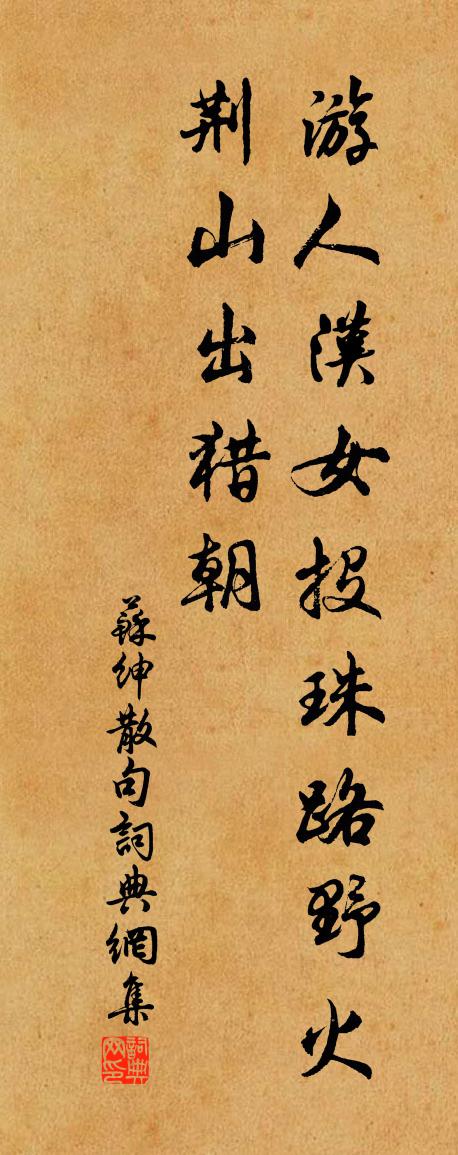 游人漢女投珠路野火
荆山出猎朝
蘇紳散句詞典網集
詞典網印